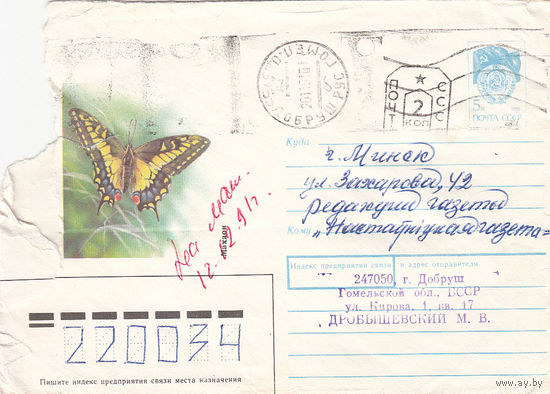 ПОЧТА СССР
2
КОП
5к
ПОЧТА СССР
Куда
г. Минск
ул. Захарова, 42
редакция газеты
Кому
„Настаўніцкая газета"
12. 91г.
Махаон
Индекс предприятия связи и адрес отправителя
247050, г. Добруш
Гомельской обл., БССР
ул. Кирова, 1, кв. 17
ДРОБЫШЕВСКИЙ М. В.
220034
Пишите индекс предприятия связи места назначения
www.ay.by